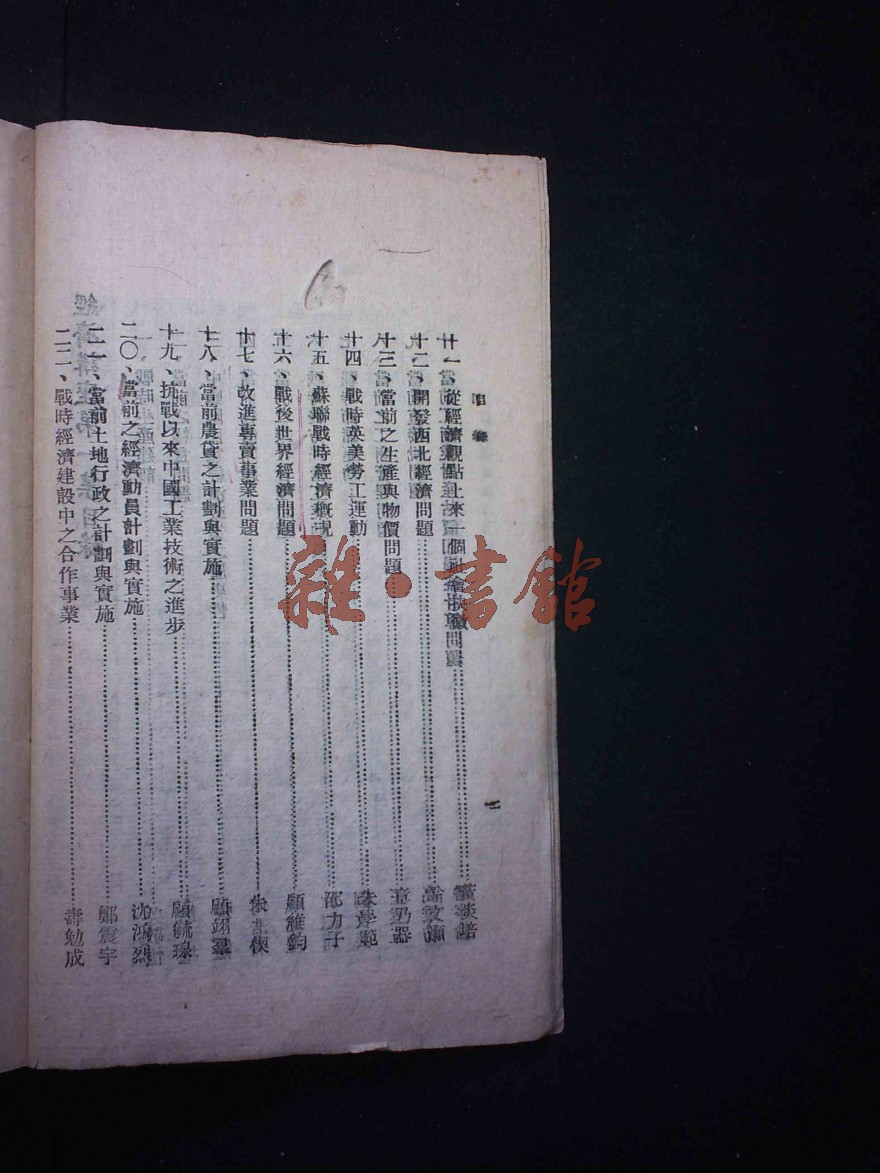 目錄
十一、從經濟觀點上來一個社會問題
十二、開發西北經濟問題
十三、當前之生產與物價問題 章乃器
十四、戰時英美勞工運動 朱學範
十五、蘇聯戰時經濟概況 邵力子
十六、戰後世界經濟問題 顧維鈞
十七、改進專賣事業問題 朱偰
十八、當前農貸之計劃與實施 顧翊羣
十九、抗戰以來中國工業技術之進步 顧毓瑔
二〇、當前之經濟動員計劃與實施 沈鴻烈
二一、當前土地行政之計劃與實施 鄭震宇
二二、戰時經濟建設中之合作事業 壽勉成
二
雜·書館